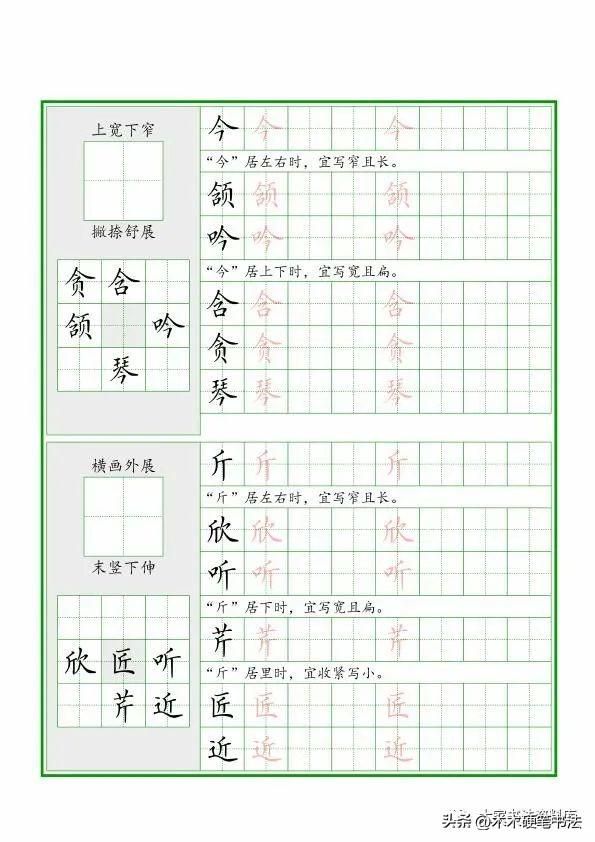 上宽下窄
撇捺舒展
贪 含
颔 吟
琴
今 今 今
“今”居左右时，宜写窄且长。
颔 颔 颔
吟 吟 吟
“今”居上下时，宜写宽且扁。
含 含 含
贪 贪 贪
琴 琴 琴
横画外展
末竖下伸
欣 匠 听
芹 近
斤 斤 斤
“斤”居左右时，宜写窄且长。
欣 欣 欣
听 听 听
“斤”居下时，宜写宽且扁。
芹 芹 芹
“斤”居里时，宜收紧写小。
匠 匠 匠
近 近 近
头条 @木木硬笔书法